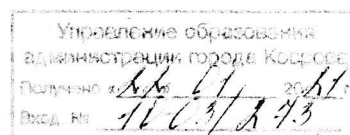 Управление образования
администрации города Коврова
Получено «22» 01 2021 г.
Вход. № 11-03/273